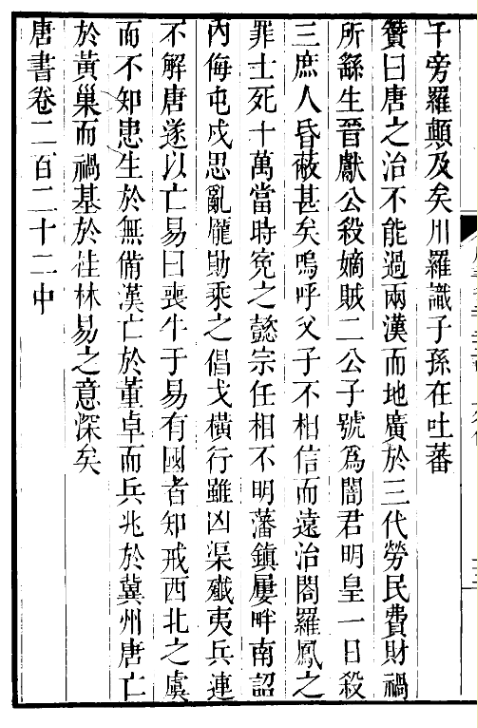 千旁羅顛及矣川羅識子孫在吐蕃
贊曰唐之治不能過兩漢而地廣於三代勞民費財禍
所繇生晉獻公殺嫡賊二公子號爲闇君明皇一日殺
三庶人昏蔽甚矣嗚呼父子不相信而遠治閤羅鳳之
罪士死十萬當時寃之懿宗任相不明藩鎮屢畔南詔
內侮屯戍思亂龐勛乘之倡戈橫行雖凶渠殲夷兵連
不解唐遂以亡易曰喪牛于易有國者知戒西北之虞
而不知患生於無備漢亡於董卓而兵兆於冀州唐亡
於黃巢而禍基於桂林易之意深矣
唐書卷二百二十二中